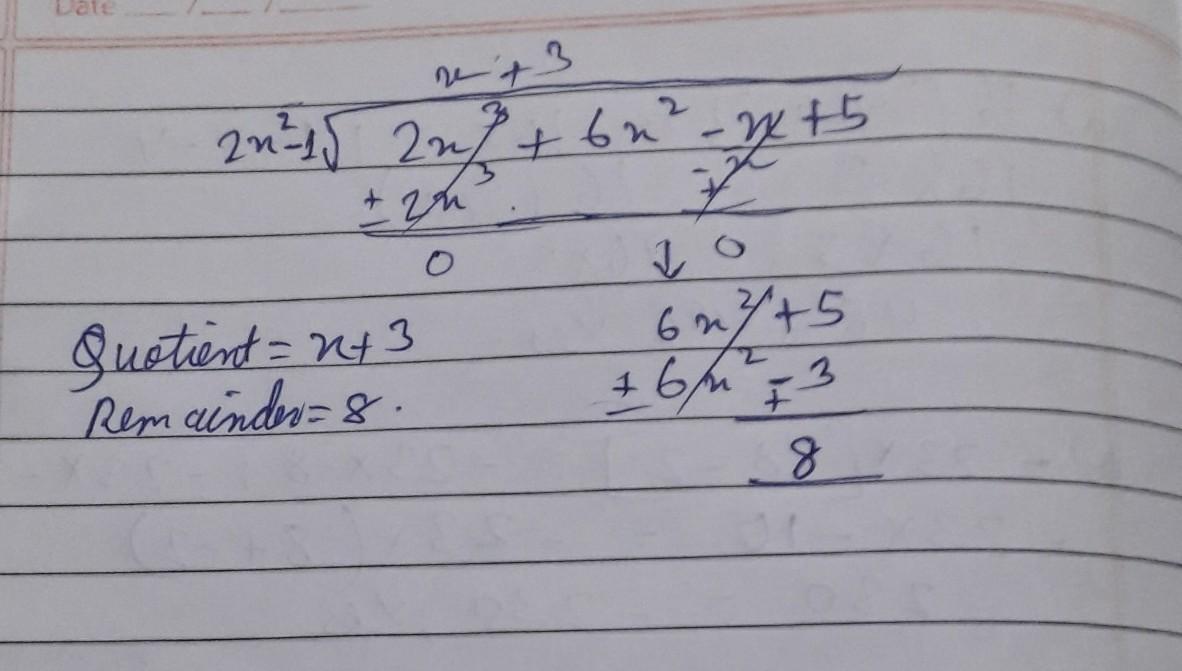 Date __/__/____
x + 3
2x²-1√ 2x³ + 6x² - x + 5
± 2x³ ∓ x
0 ↓ 0
6x² + 5
± 6x² ∓ 3
8
Quotient = x+3
Remainder = 8.